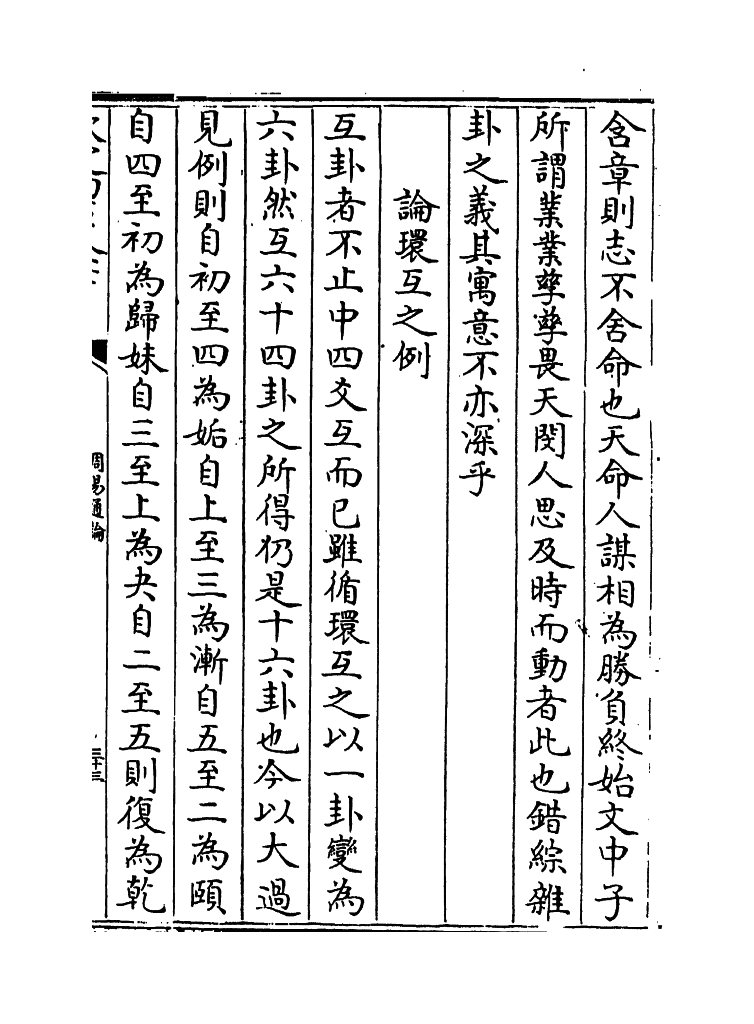 含章則志不舍命也天命人謀相為勝負終始文中子
所謂業業孳孳畏天閔人思及時而動者此也錯綜雜
卦之義其寓意不亦深乎
論環互之例
互卦者不止中四爻互而已雖循環互之以一卦變為
六卦然互六十四卦之所得仍是十六卦也今以大過
見例則自初至四為姤自上至三為漸自五至二為頤
自四至初為歸妹自三至上為夬自二至五則復為乾
周易通論
三十三